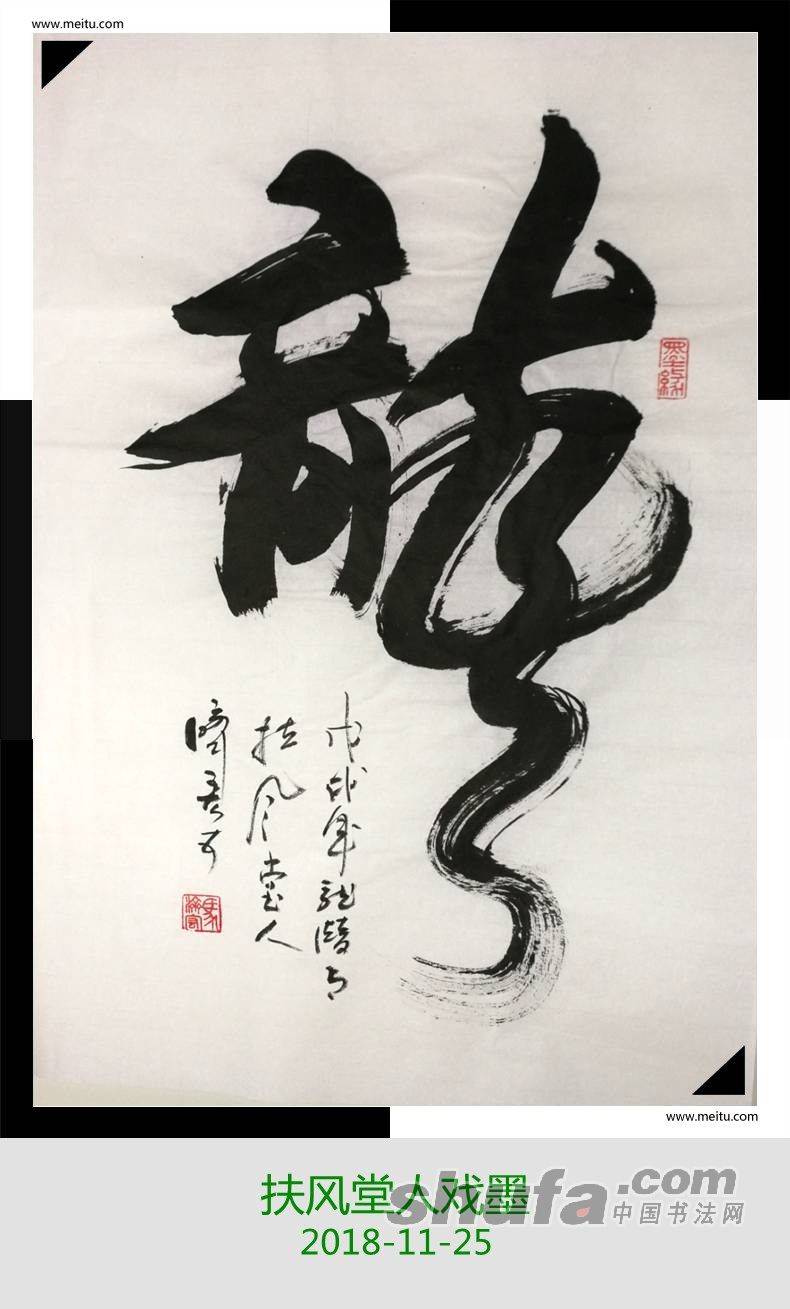 www.meitu.com
龍
墨缘
戊戌年龍潜月
扶风堂人
www.meitu.com
扶风堂人戏墨
shufa.com
中国书法网
2018-11-25